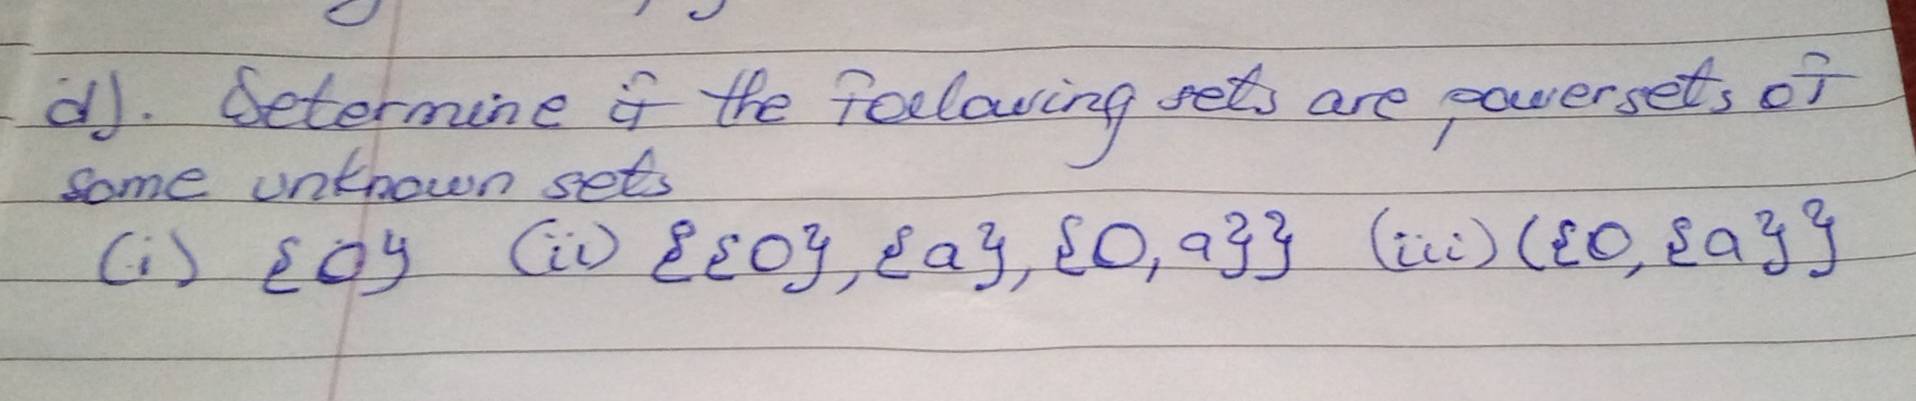 d). Determine if the following sets are powersets of
some unknown sets
(i) {0} (ii) {{0}, {a}, {0, a}} (iii) ({0, {a}}